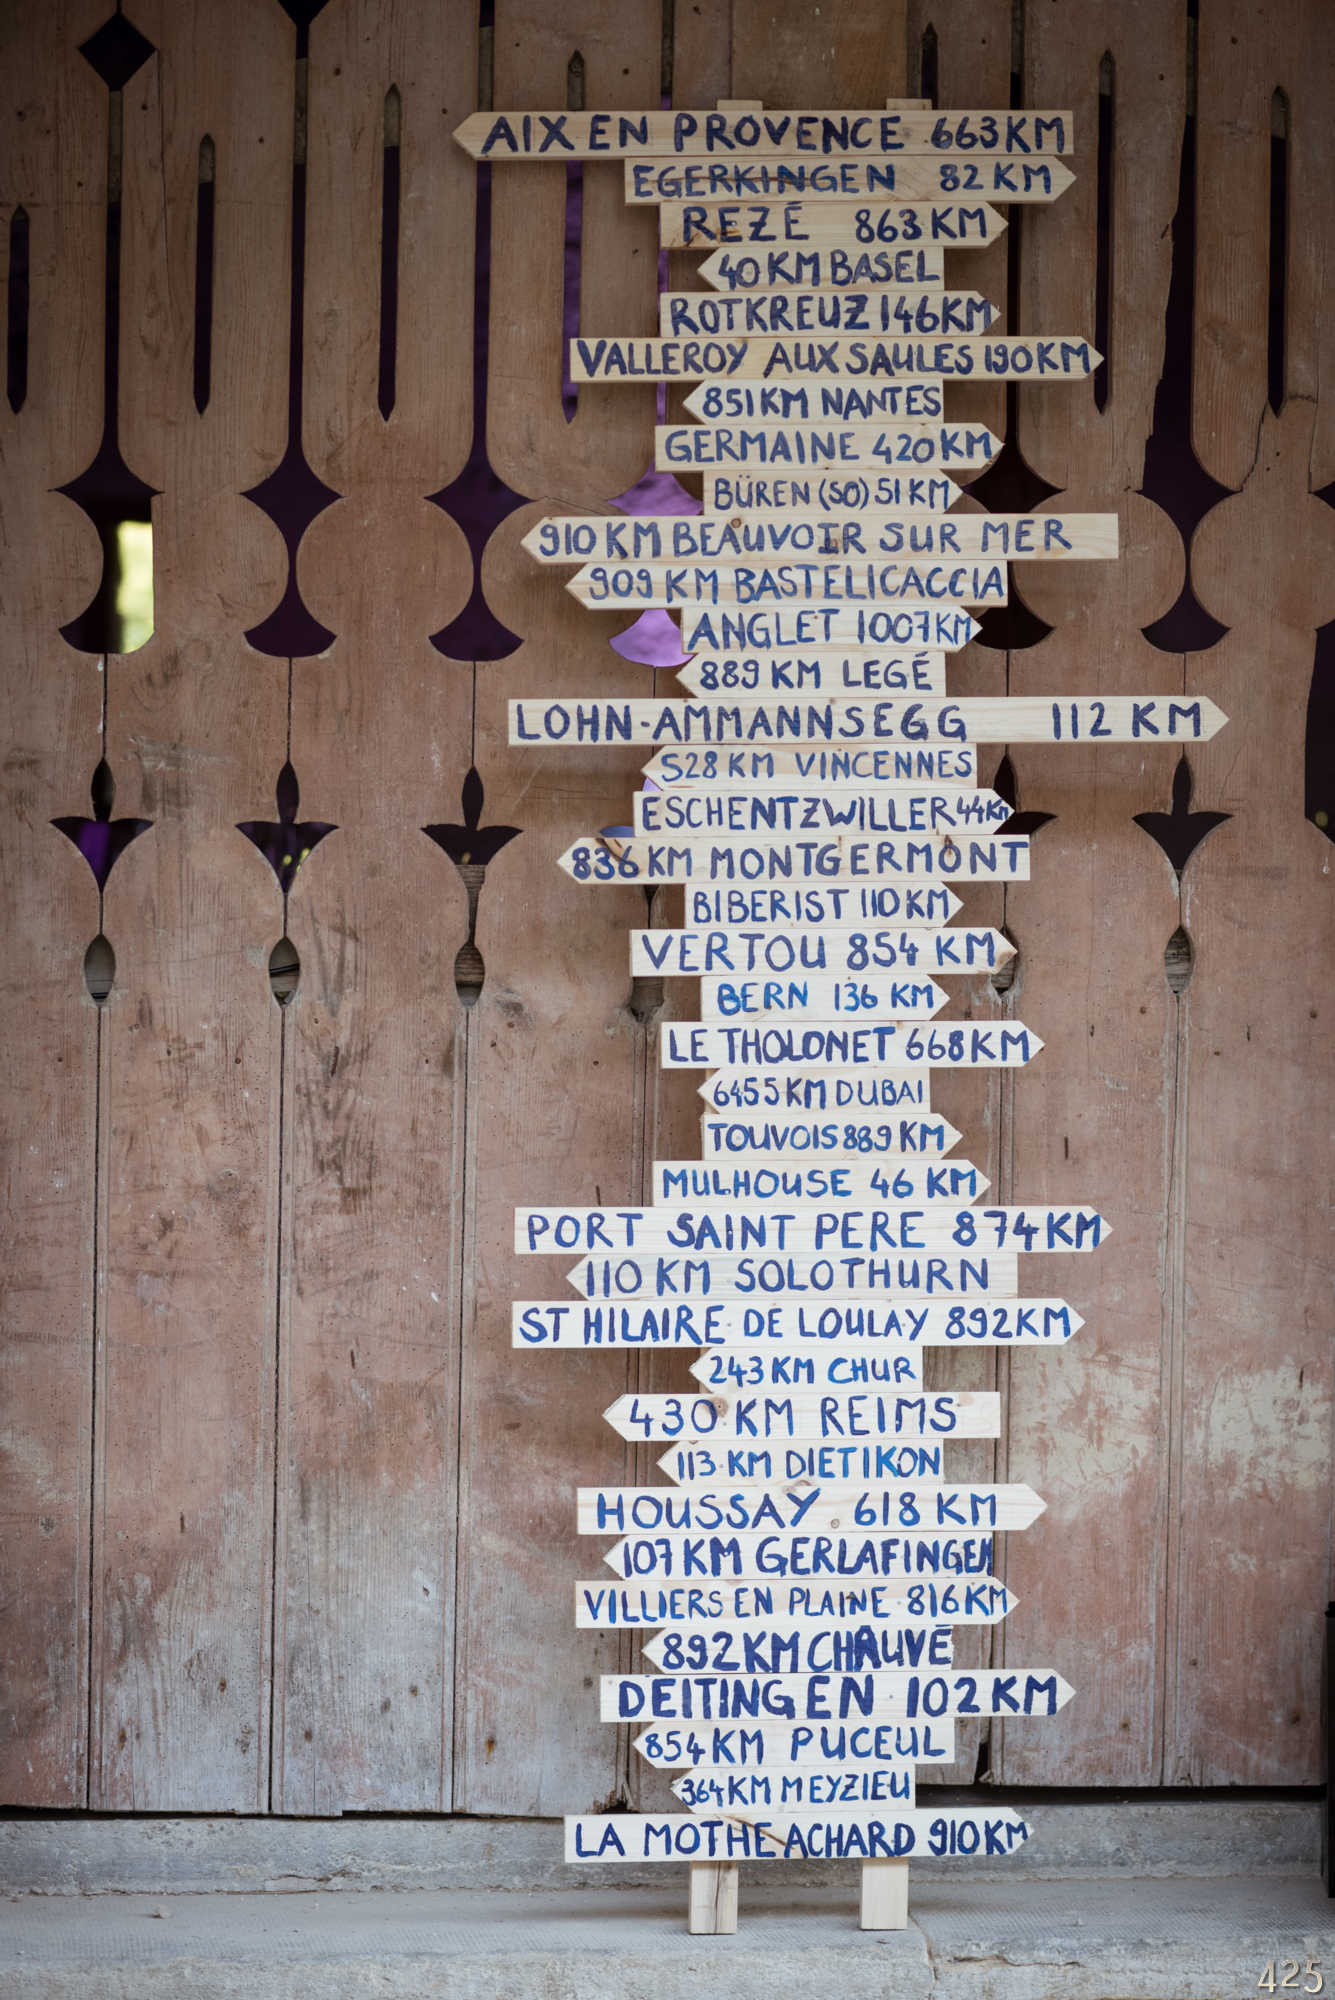 AIX EN PROVENCE 663KM
EGERKINGEN 82KM
REZÉ 863KM
40KM BASEL
ROTKREUZ 146KM
VALLEROY AUX SAULES 190KM
851KM NANTES
GERMAINE 420KM
BÜREN (SO) 51KM
910KM BEAUVOIR SUR MER
909KM BASTELICACCIA
ANGLET 1007KM
889KM LEGÉ
LOHN-AMMANNSEGG 112 KM
528KM VINCENNES
ESCHENTZWILLER 44Km
836KM MONTGERMONT
BIBERIST 110KM
VERTOU 854 KM
BERN 136 KM
LE THOLONET 668KM
6455KM DUBAI
TOUVOIS 889KM
MULHOUSE 46 KM
PORT SAINT PERE 874KM
110KM SOLOTHURN
ST HILAIRE DE LOULAY 892KM
243KM CHUR
430 KM REIMS
113 KM DIETIKON
HOUSSAY 618 KM
107KM GERLAFINGEN
VILLIERS EN PLAINE 816KM
892KM CHAUVÉ
DEITINGEN 102KM
854KM PUCEUL
364KM MEYZIEU
LA MOTHE ACHARD 910KM
425